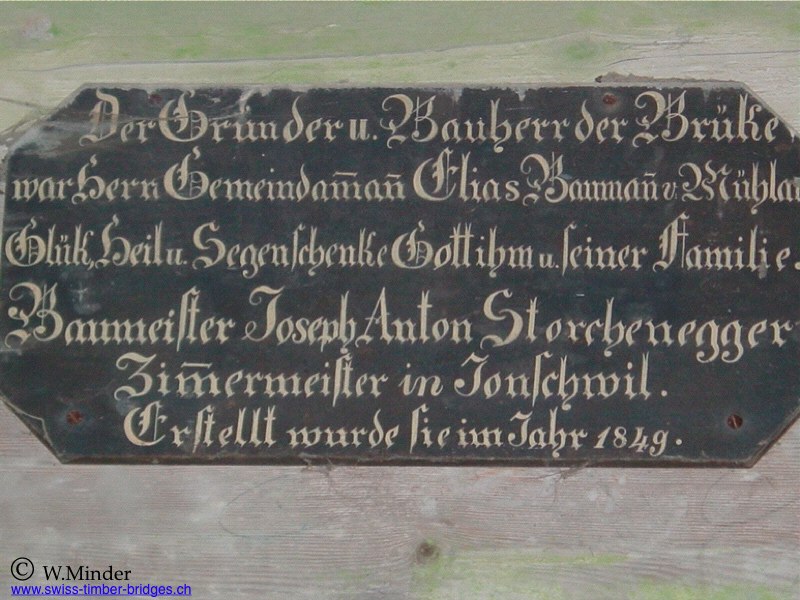 Der Gründer u. Bauherr der Brüke
war Herrn Gemeindam̄an̄ Elias Bauman̄ v. Mühlau
Glük, Heil u. Segen schenke Gott ihm u. seiner Familie.
Baumeiſter Joseph Anton Storchenegger
Zim̄ermeiſter in Jonſchwil.
Erſtellt wurde ſie im Jahr 1849.
© W.Minder
www.swiss-timber-bridges.ch